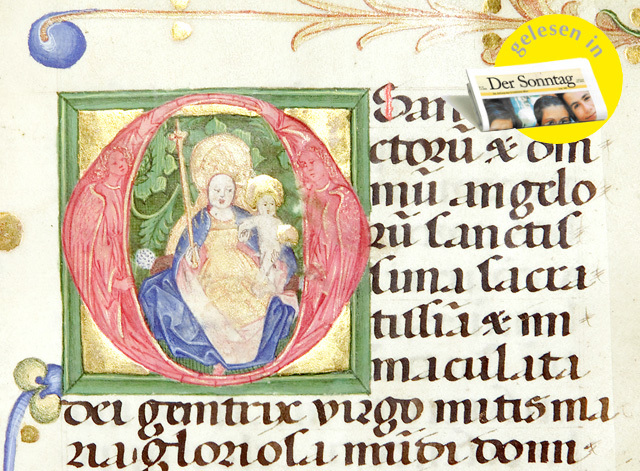 gelesen in
Der Sonntag
O San
ctorū & om
niū angelo
rū sanctis
sima sacra
tissīa & im
maculata
dei genitrix virgo mitis ma
ria gloriosa mūdi domi